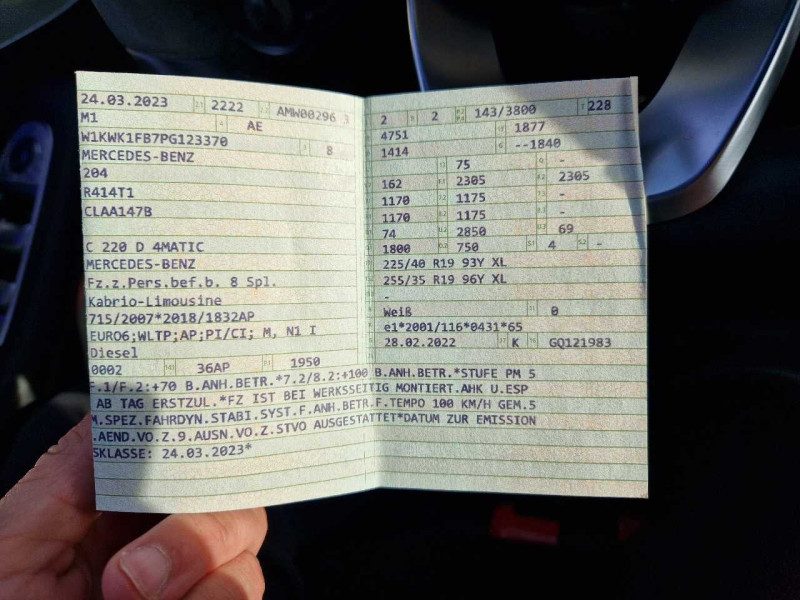 24.03.2023 2.1 2222 2.2 AMW00296 3
M1 4 AE
W1KWK1FB7PG123370 3 8
MERCEDES-BENZ
204
R414T1
CLAA147B
C 220 D 4MATIC
MERCEDES-BENZ
Fz.z.Pers.bef.b. 8 Spl.
Kabrio-Limousine
715/2007*2018/1832AP
EURO6;WLTP;AP;PI/CI; M, N1 I
Diesel
0002 36AP 1950
2 2 143/3800 T 228
4751 1877
1414 G --1840
75 Q -
162 2305 2305
1170 1175 -
1170 1175 -
74 2850 69
1800 750 S.1 4 S.2 -
225/40 R19 93Y XL
255/35 R19 96Y XL
-
Weiß 0
e1*2001/116*0431*65
28.02.2022 K GQ121983
F.1/F.2:+70 B.ANH.BETR.*7.2/8.2:+100 B.ANH.BETR.*STUFE PM 5
AB TAG ERSTZUL.*FZ IST BEI WERKSSEITIG MONTIERT.AHK U.ESP
M.SPEZ.FAHRDYN.STABI.SYST.F.ANH.BETR.F.TEMPO 100 KM/H GEM.5
.AEND.VO.Z.9.AUSN.VO.Z.STVO AUSGESTATTET*DATUM ZUR EMISSION
SKLASSE: 24.03.2023*